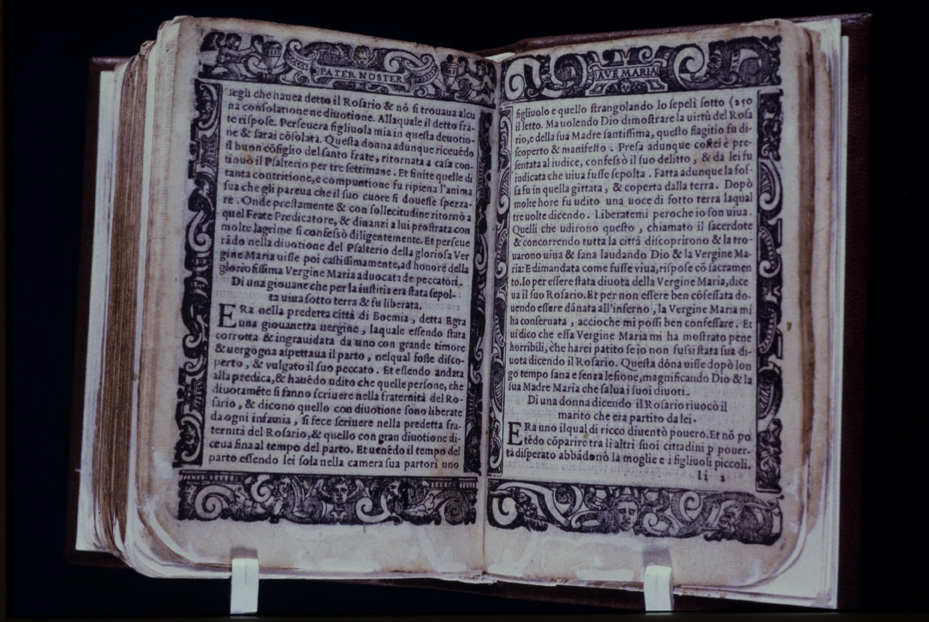 PATER NOSTER
segli che hauea detto il Rosario & nõ si trouaua alcu
na consolatione ne diuotione. Alla quale il detto fra-
te rispose. Perseuera figliuola mia in questa deuotio-
ne & sarai cõsolata. Questa donna adunque riceuẽdo
il buon cõsiglio del santo frate, ritornata a casa con-
tinuò il Psalterio per tre settimane. Et finite quelle di
tanta contritione, e compuntione fu ripiena l'anima
sua che gli pareua che il suo cuore si douesse spezza-
re. Onde prestamente & con sollecitudine ritornò a
quel Frate Predicatore, & dinanzi a lui prostrata con
molte lagrime si confessò diligentemente. Et perseue
rãdo nella diuotione del Psalterio della gloriosa Ver
gine Maria uisse poi castissimamente, ad honore della
gloriosissima Vergine Maria aduocata de peccatori.
Di una giouane che per la iustitia era stata sepol-
ta uiua sotto terra & fu liberata.
ERa nella predetta città di Boemia, detta Egra
una giouanetta uergine, laquale essendo stata
corrotta & ingrauidata da uno con grande timore
& uergogna aspettaua il parto, nelqual fosse disco-
perto, & vulgato il suo peccato. Et essendo andata
alla predica, & hauẽdo udito che quelle persone, che
diuotamẽte si fanno scriuere nella fraternità del Ro-
sario, & dicono quello con diuotione sono liberate
da ogni infamia, si fece scriuere nella predetta fra-
ternità del Rosario, & quello con gran diuotione di-
ceua fina al tempo del parto. Et uenẽdo il tempo del
parto essendo lei sola nella camera sua partori uno
AVE MARIA
figliuolo e quello strangolando lo sepeli sotto (250
il letto. Ma uolendo Dio dimostrare la uirtù del Rosa
rio, e della sua Madre santissima, questo flagitio fu di-
scoperto & manifesto. Presa adunque costei è pre-
sentata al iudice, confessò il suo delitto, & da lei fu
iudicata che uiua fusse sepolta. Fatta adunque la fos-
sa fu in quella gittata, & coperta dalla terra. Dopò
molte hore fu udito una uoce di sotto terra laqual
tre uolte dicendo. Liberatemi peroche io son uiua.
Quelli che udirono questo, chiamato il sacerdote
& concorrendo tutta la città discoprirono & la tro-
uarono uiua & sana laudando Dio & la Vergine Ma-
ria: Et dimandata come fusse viua, rispose cõ sacramen
to. Io per essere stata diuota della Vergine Maria, dice
ua il suo Rosario. Et per non essere ben cõfessata do-
uendo essere dãnata all'inferno, la Vergine Maria mi
ha conseruata, accioche mi possi ben confessare. Et
ui dico che essa Vergine Maria mi ha mostrato pene
horribili, che harei patito se io non fussi stata sua di-
uota dicendo il Rosario. Questa dõna uisse dopò lon
go tempo sana e senza lesione, magnificando Dio & la
sua Madre Maria che salua i suoi diuoti.
Di una donna dicendo il Rosario riuocò il
marito che era partito da lei.
ERa uno ilqual di ricco diuentò pouero. Et nõ po
tẽdo cõparire tra li altri suoi cittadini p pouer-
tà disperato abbãdonò la moglie e i figliuoli piccoli.
Ii 2